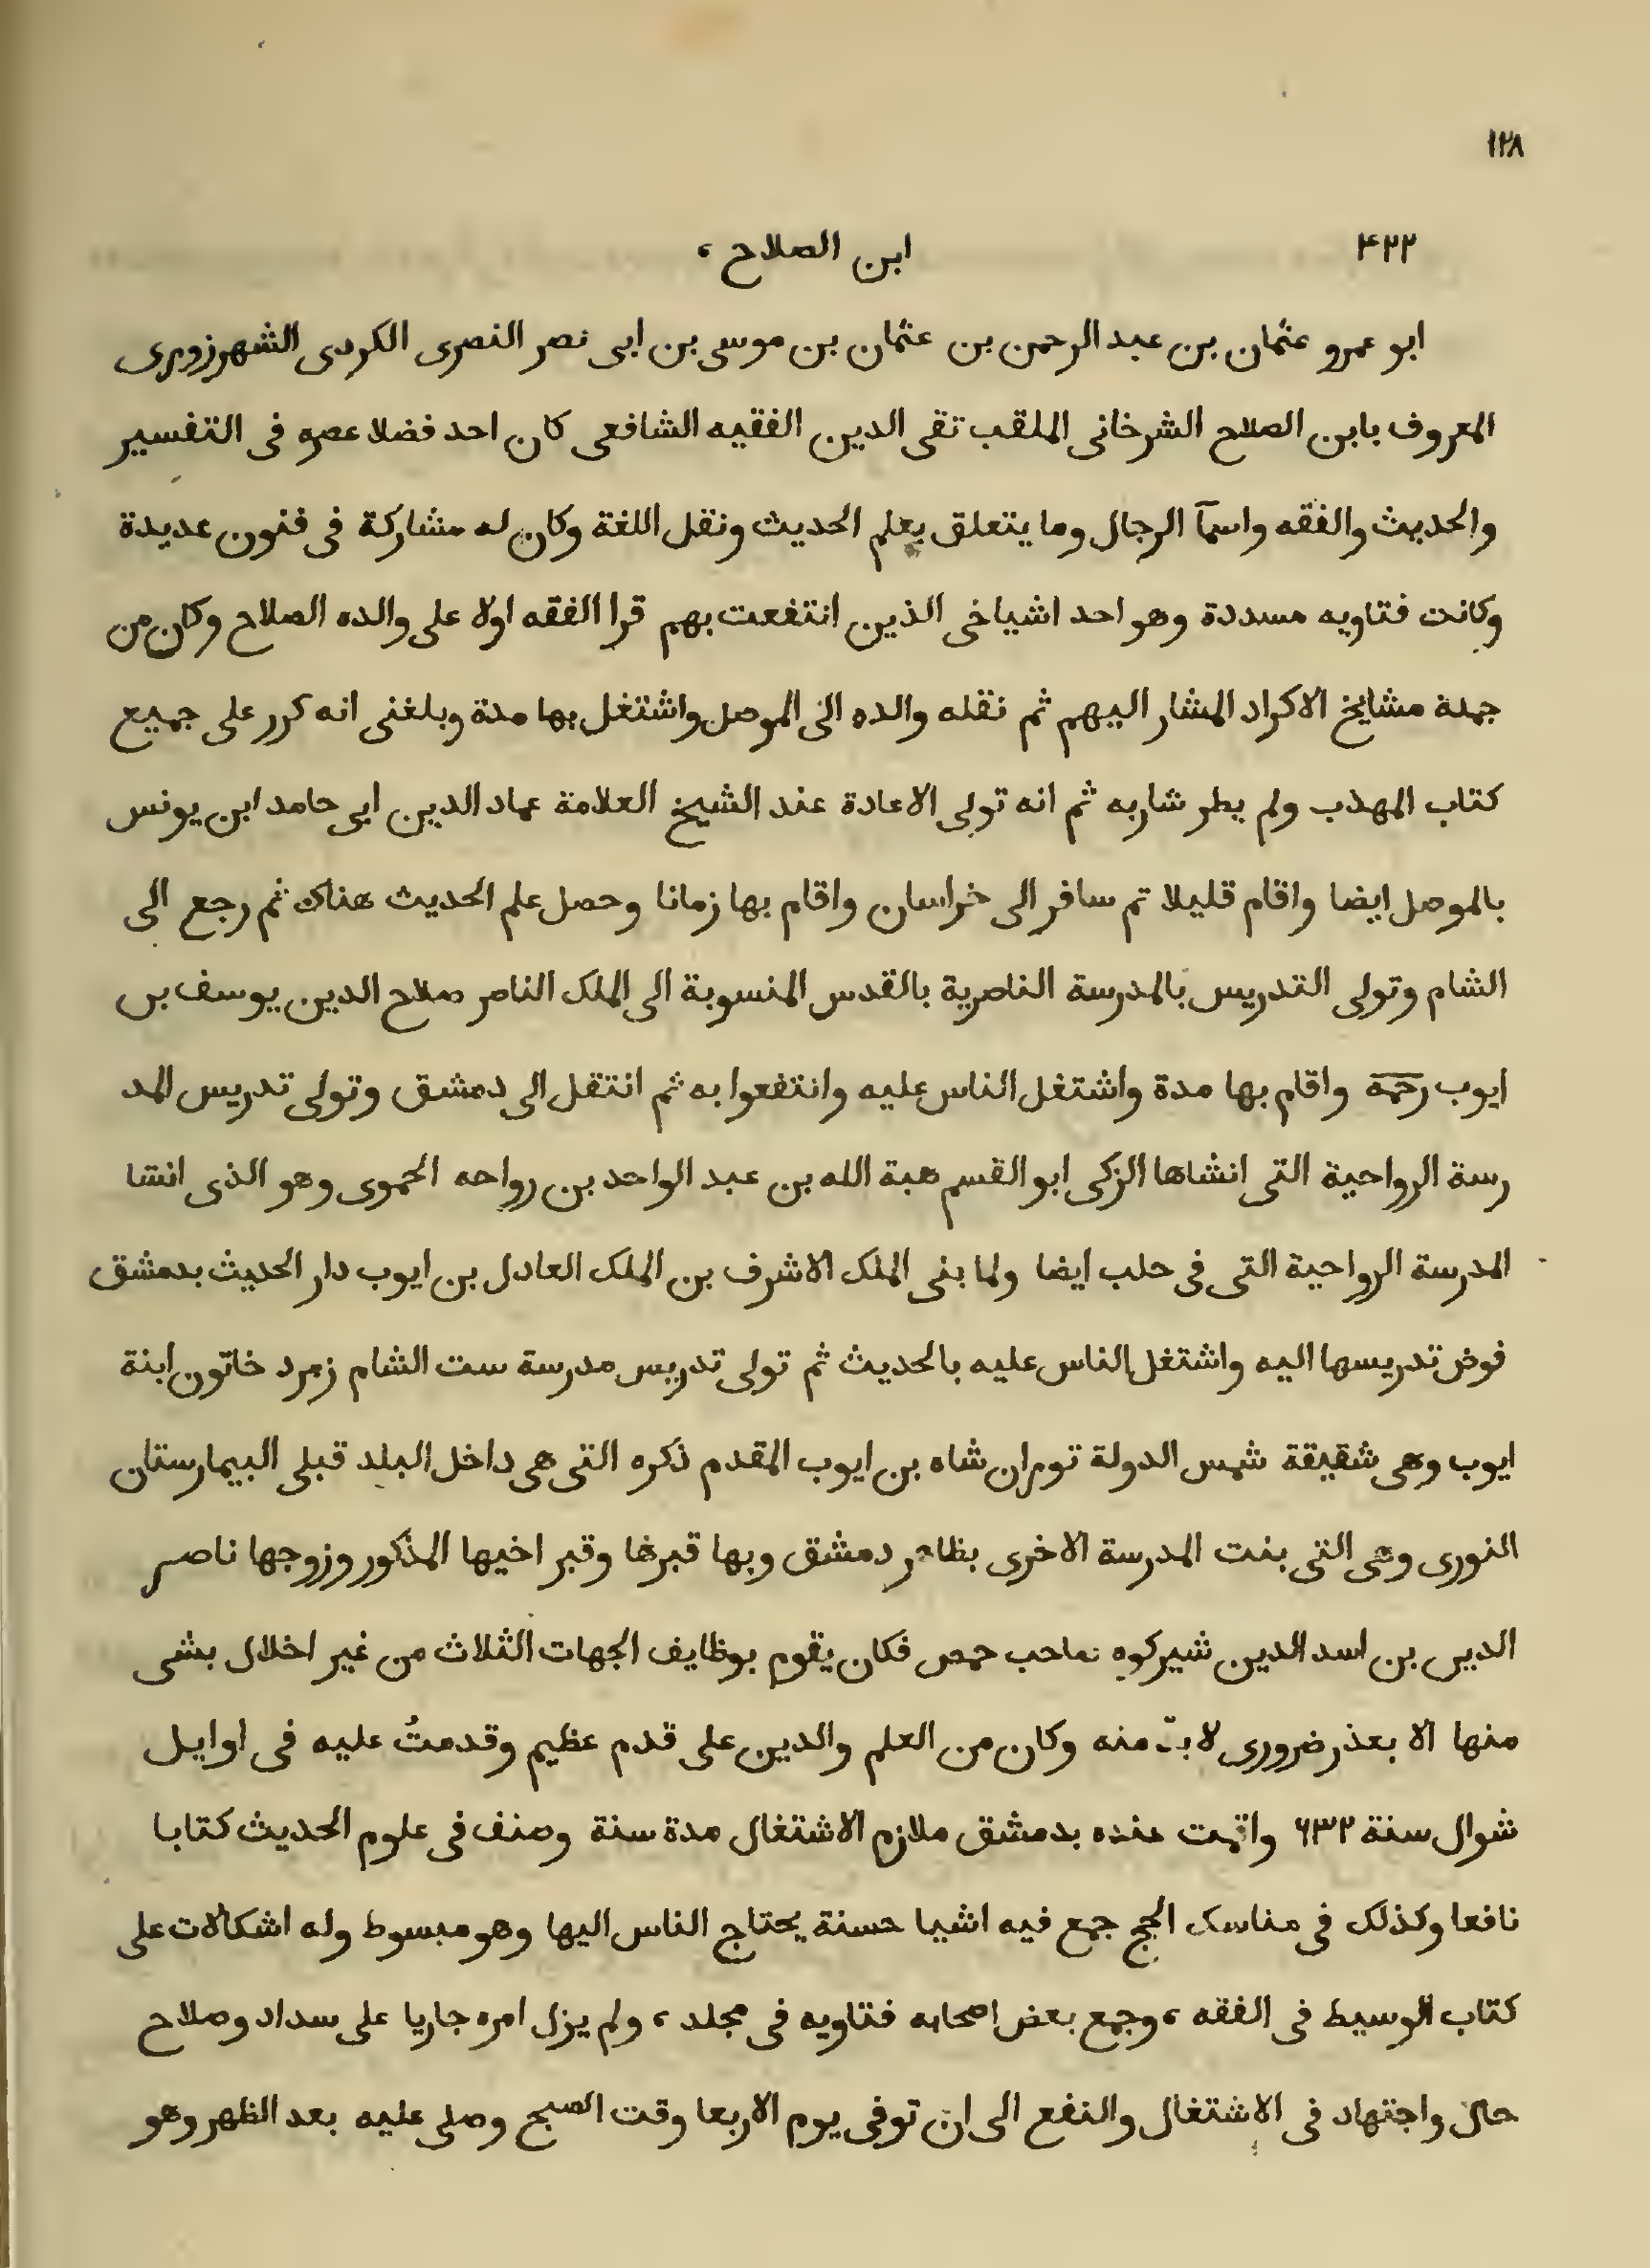 ١٢٨
٤٢٢ ابن الصلاح ،
ابو عمرو عثمان بن عبد الرحمن بن عثمان بن موسى بن ابى نصر النصرى الكردى الشهرزورى
المعروف بابن الصلاح الشرخانى الملقب تقى الدين الفقيه الشافعى كان احد فضلا عصره فى التفسير
والحديث والفقه واسمآ الرجال وما يتعلق بعلم الحديث ونقل اللغة وكان له مشاركة فى فنون عديدة
وكانت فتاويه مسددة وهو احد اشياخى الذين انتفعت بهم قرا الفقه اولا على والده الصلاح وكان من
جملة مشايخ الاكراد المشار اليهم ثم نقله والده الى الموصل واشتغل بها مدة وبلغنى انه كرر على جميع
كتاب المهذب ولم يطر شاربه ثم انه تولى الاعادة عند الشيخ العلامة عماد الدين ابى حامد ابن يونس
بالموصل ايضا واقام قليلا ثم سافر الى خراسان واقام بها زمانا وحصل علم الحديث هناك ثم رجع الى
الشام وتولى التدريس بالمدرسة الناصرية بالقدس المنسوبة الى الملك الناصر صلاح الدين يوسف بن
ايوب رحمه واقام بها مدة واشتغل الناس عليه وانتفعوا به ثم انتقل الى دمشق وتولى تدريس المد
رسة الرواحية التى انشاها الزكى ابو القسم هبة الله بن عبد الواحد بن رواحه الحموى وهو الذى انشا
المدرسة الرواحية التى فى حلب ايضا ولما بنى الملك الاشرف بن الملك العادل بن ايوب دار الحديث بدمشق
فوض تدريسها اليه واشتغل الناس عليه بالحديث ثم تولى تدريس مدرسة ست الشام زمرد خاتون ابنة
ايوب وهى شقيقة شمس الدولة توران شاه بن ايوب المقدم ذكره التى هى داخل البلد قبلى البيمارستان
النورى وهى التى بنت المدرسة الاخرى بظاهر دمشق وبها قبرها وقبر اخيها المذكور وزوجها ناصر
الدين بن اسد الدين شيركوه صاحب حمص فكان يقوم بوظايف الجهات الثلاث من غير اخلال بشى
منها الا بعذر ضرورى لا بدّ منه وكان من العلم والدين على قدم عظيم وقدمتُ عليه فى اوايل
شوال سنة ٦٣٢ واقمت عنده بدمشق ملازم الاشتغال مدة سنة وصنف فى علوم الحديث كتابا
نافعا وكذلك فى مناسك الحج جمع فيه اشيا حسنة يحتاج الناس اليها وهو مبسوط وله اشكالات على
كتاب الوسيط فى الفقه ، وجمع بعض اصحابه فتاويه فى مجلد ، ولم يزل امره جاريا على سداد وصلاح
حال واجتهاد فى الاشتغال والنفع الى ان توفى يوم الاربعا وقت الصبح وصلى عليه بعد الظهر وهو